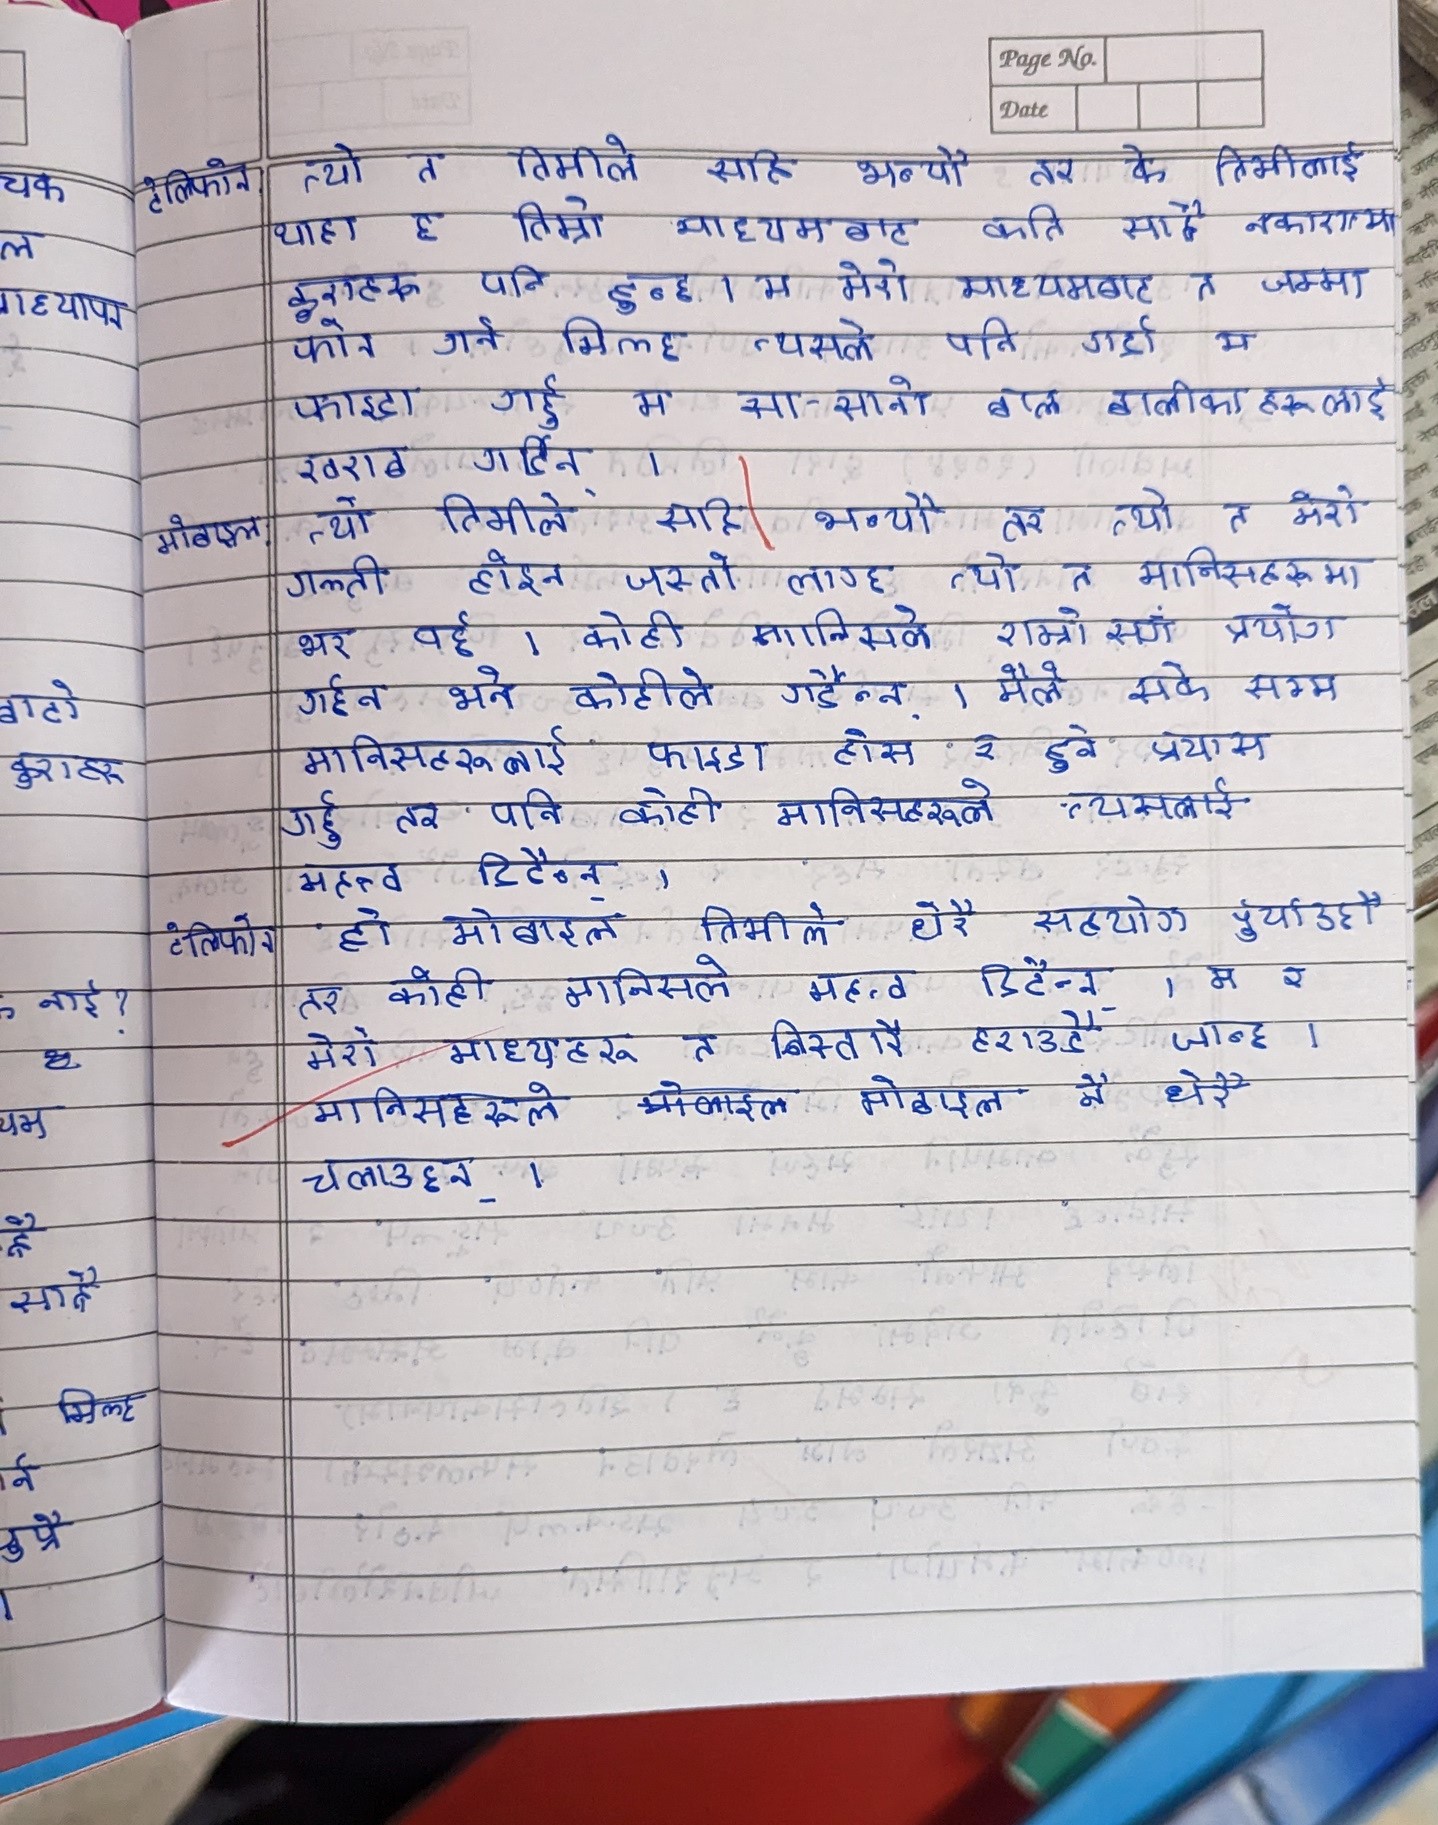 Page No.
Date
टेलिफोन त्यो त तिमीले सहि भन्यौ तर के तिमीलाई
थाहा छ तिम्रो माध्यमबाट कति साह्रै नकारात्मा
कुराहरू पनि हुन्छ । म मेरो माध्यमबाट त जम्मा
फोन गर्न मिल्छ त्यसले पनि गर्दा म
फाइदा गर्छु म सा-सानो बाल बालीकाहरूलाई
खराब गर्दिन् ।
मोबाइल त्यो तिमीले सहि भन्यौ तर त्यो त मेरो
गल्ती होइन जस्तो लाग्छ त्यो त मानिसहरूमा
भर पर्छ । कोही मानिसले राम्रो सगं प्रयोग
गर्छन भने कोहीले गर्दैन्न् । मैले सके सम्म
मानिसहरूलाई फाइदा होस रे हुने प्रयास
गर्छु तर पनि कोही मानिसहरूले त्यसलाई
महत्व दिदैन्न् ।
टेलिफोन हो मोबाइल तिमीले धेरै सहयोग पुर्याउछौ
तर कोही मानिसले महत्व दिदैन्न् । म र
मेरो माध्यहरू त बिस्तारै हराउदै जान्छ ।
मानिसहरूले मोबाइल नै धेरै
चलाउछन् ।
चक
ल
बाटो
कुराहरू
नाई ?
साह्रै
मिल्छ
र्न